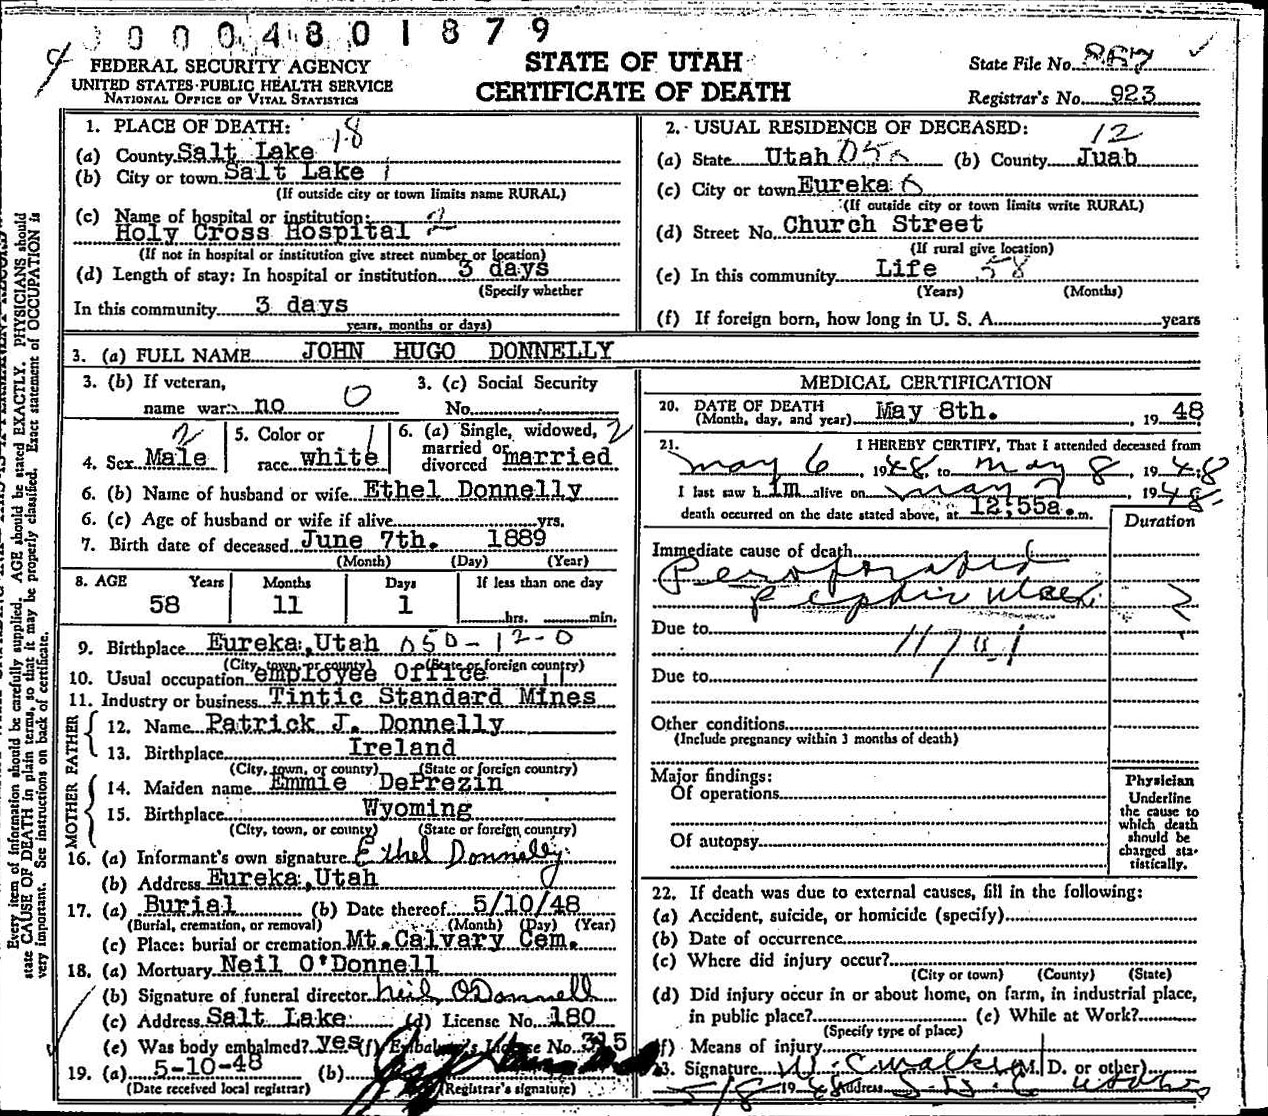 0 0 0 4 8 0 1 8 7 9
FEDERAL SECURITY AGENCY
UNITED STATES PUBLIC HEALTH SERVICE
NATIONAL OFFICE OF VITAL STATISTICS
STATE OF UTAH
CERTIFICATE OF DEATH
State File No. 867
Registrar's No. 923
1. PLACE OF DEATH: 18
(a) County Salt Lake
(b) City or town Salt Lake 1
(If outside city or town limits name RURAL)
(c) Name of hospital or institution:
Holy Cross Hospital 2
(If not in hospital or institution give street number or location)
(d) Length of stay: In hospital or institution 3 days
(Specify whether
In this community 3 days
years, months or days)
2. USUAL RESIDENCE OF DECEASED: 12
(a) State Utah (b) County Juab
(c) City or town Eureka
(If outside city or town limits write RURAL)
(d) Street No. Church Street
(If rural give location)
(e) In this community Life 58
(Years) (Months)
(f) If foreign born, how long in U. S. A. years
3. (a) FULL NAME JOHN HUGO DONNELLY
3. (b) If veteran, 3. (c) Social Security
name war no 0 No.
4. Sex Male 5. Color or race white 1 6. (a) Single, widowed, married or divorced married 2
6. (b) Name of husband or wife Ethel Donnelly
6. (c) Age of husband or wife if alive yrs.
7. Birth date of deceased June 7th. 1889
(Month) (Day) (Year)
8. AGE Years Months Days If less than one day
58 11 1 hrs. min.
9. Birthplace Eureka, Utah 050-12-0
(City, town, or county) (State or foreign country)
10. Usual occupation employee Office
11. Industry or business Tintic Standard Mines
FATHER
12. Name Patrick J. Donnelly
13. Birthplace Ireland
(City, town, or county) (State or foreign country)
MOTHER
14. Maiden name Emmie DePrezin
15. Birthplace Wyoming
(City, town, or county) (State or foreign country)
16. (a) Informant's own signature Ethel Donnelly
(b) Address Eureka, Utah
17. (a) Burial (b) Date thereof 5/10/48
(Burial, cremation, or removal) (Month) (Day) (Year)
(c) Place: burial or cremation Mt. Calvary Cem.
18. (a) Mortuary Neil O'Donnell
(b) Signature of funeral director Neil O'Donnell
(c) Address Salt Lake (d) License No. 180
(e) Was body embalmed? yes (f) Embalmer's License No. 315
19. (a) 5-10-48 (b)
(Date received local registrar) (Registrar's signature)
MEDICAL CERTIFICATION
20. DATE OF DEATH May 8th. 19 48
(Month, day, and year)
21. I HEREBY CERTIFY, That I attended deceased from
May 6, 1948, to May 8, 1948
I last saw him alive on May 7, 1948.
death occurred on the date stated above, at 12:55a. m.
Duration
Immediate cause of death
Perforated
peptic ulcer
Due to
Due to
Other conditions
(Include pregnancy within 3 months of death)
Major findings:
Of operations
Of autopsy
Physician
Underline
the cause to
which death
should be
charged sta-
tistically.
22. If death was due to external causes, fill in the following:
(a) Accident, suicide, or homicide (specify)
(b) Date of occurrence
(c) Where did injury occur?
(City or town) (County) (State)
(d) Did injury occur in or about home, on farm, in industrial place,
in public place? (e) While at Work?
(Specify type of place)
(f) Means of injury
23. Signature (M. D. or other)
5/8 19 48 Address
Every item of information should be carefully supplied. AGE should be stated EXACTLY. PHYSICIANS should
state CAUSE OF DEATH in plain terms, so that it may be properly classified. Exact statement of OCCUPATION is
very important. See instructions on back of certificate.